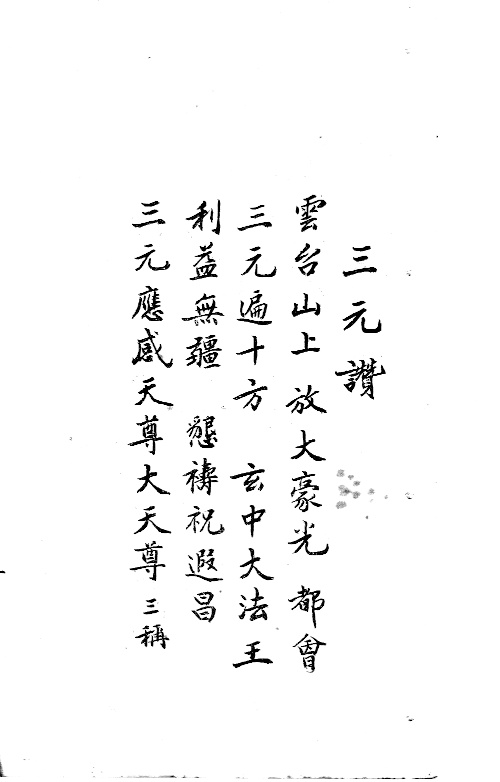 三元讚
雲台山上 放大豪光 都會
三元遍十方 玄中大法王
利益無疆 懇禱祝遐昌
三元應感天尊大天尊 三稱